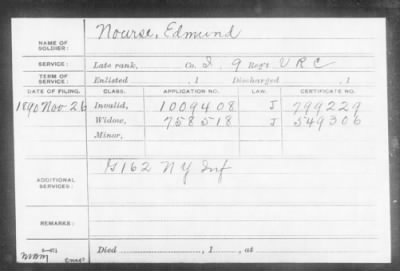 NAME OF SOLDIER: Nourse, Edmund
SERVICE: Late rank, Co. I, 9 Reg't V R C
TERM OF SERVICE: Enlisted , 1 Discharged , 1
DATE OF FILING. CLASS. APPLICATION NO. LAW. CERTIFICATE NO.
1890 Nov 26 Invalid, 1009408 J 799229
Widow, 758518 J 549306
Minor,
ADDITIONAL SERVICES: G 162 N Y Inf
REMARKS:
Died , 1 , at